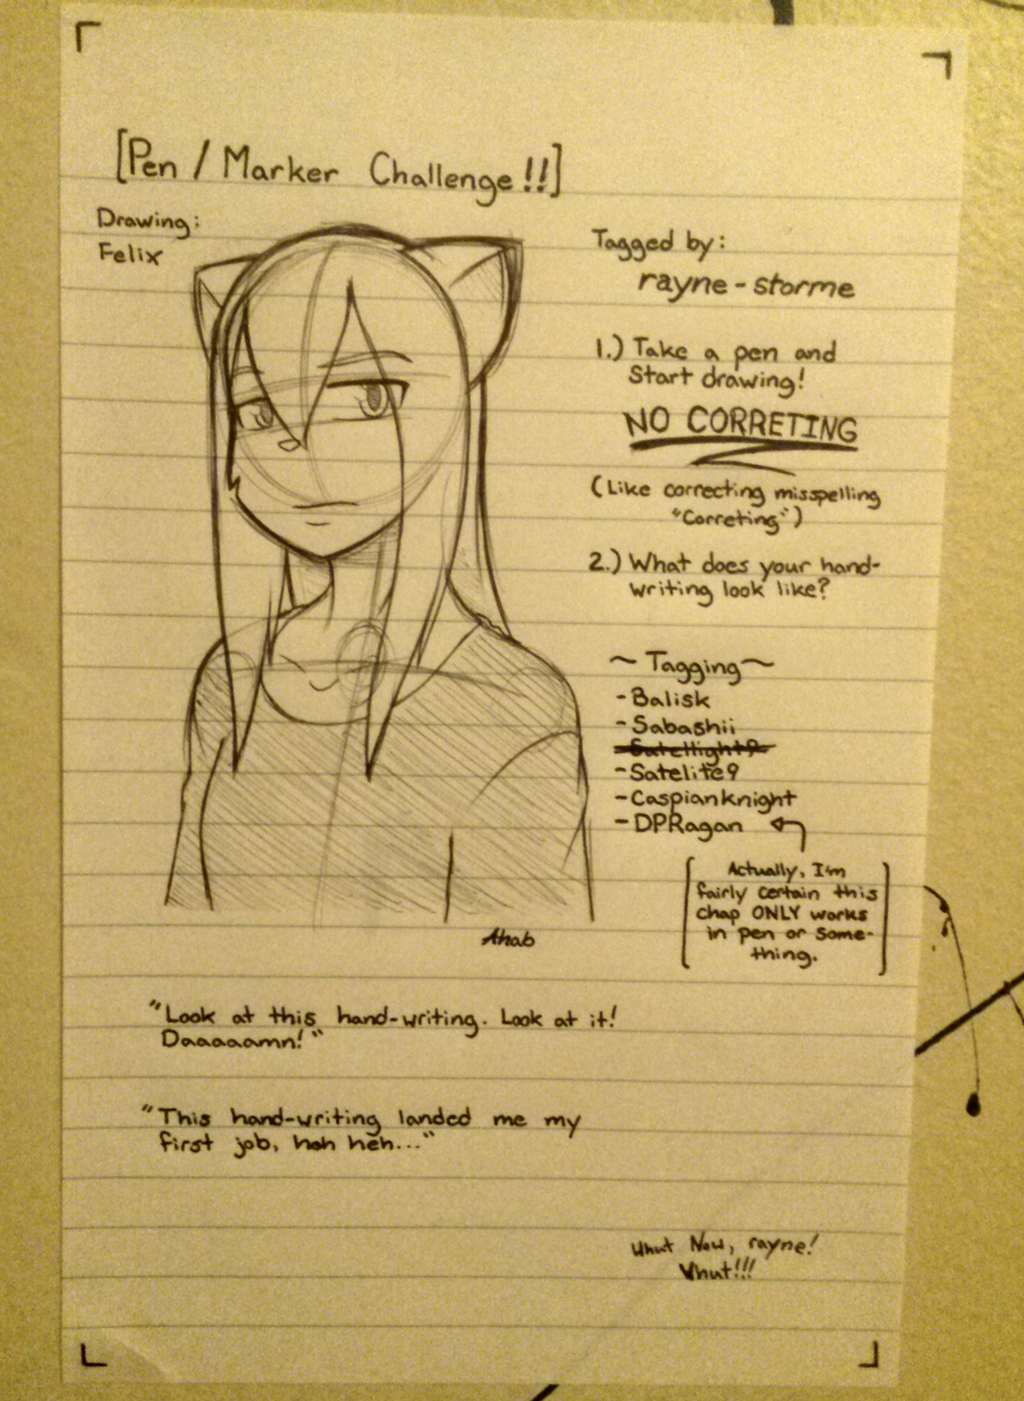 [Pen / Marker Challenge!!]
Drawing:
Felix
Tagged by:
rayne-storme
1.) Take a pen and
Start drawing!
NO CORRETING
(Like correcting misspelling
"Correting")
2.) What does your hand-
writing look like?
~ Tagging ~
-Balisk
-Sabashii
-Satellight9
-Satelite9
-Caspianknight
-DPRagan
[Actually, I'm
fairly certain this
chap ONLY works
in pen or some-
thing.]
Ahab
"Look at this hand-writing. Look at it!
Daaaaamn!"
"This hand-writing landed me my
first job, heh heh..."
Whut Now, rayne!
Whut!!!